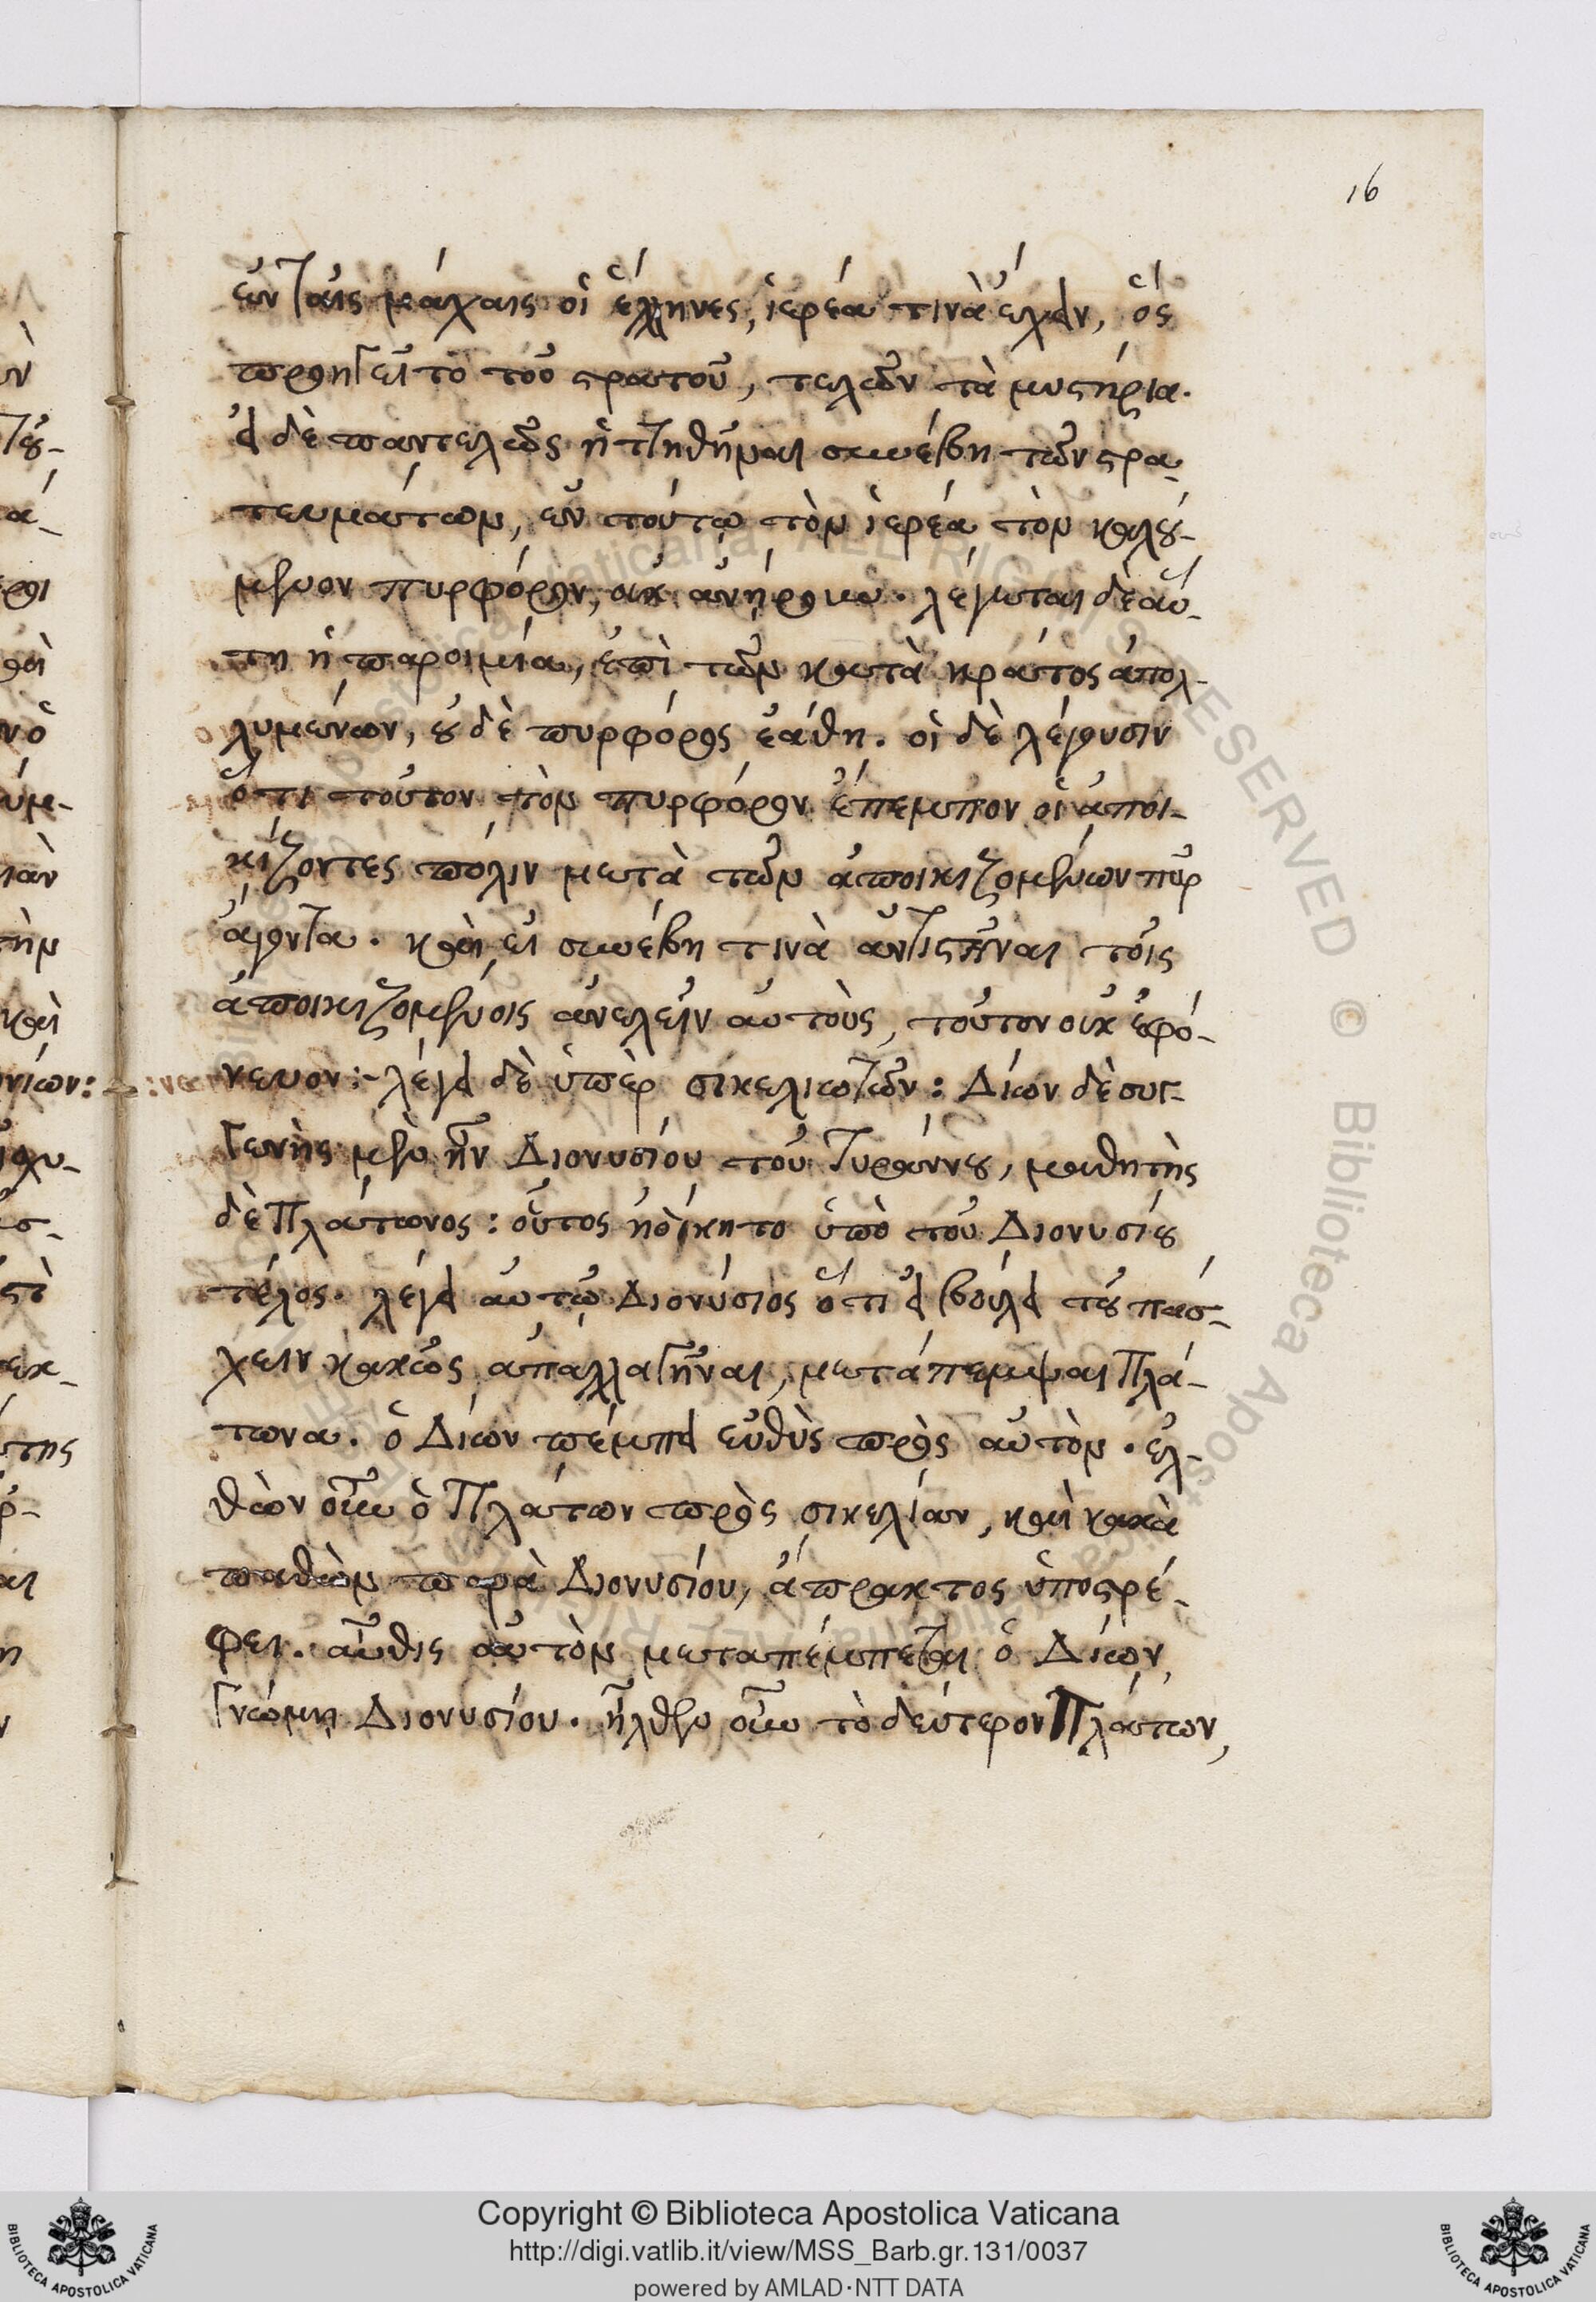 16
ἐν ταῖς μάχαις οἱ ἕλληνες, ἱερέα τινὰ εἶχον, ὃς
προηγεῖτο τοῦ στρατοῦ, τελῶν τὰ μυστήρια.
εἰ δὲ παντελῶς ἡττηθῆναι συνέβη τῶν στρα-
τευμάτων, ἐν τούτῳ τὸν ἱερέα τὸν καλού-
μενον πυρφόρον, οὐκ ἀνῄρουν. λέγεται δὲ αὕ-
τη ἡ παροιμία, ἐπὶ τῶν κατὰ κράτος ἀπολ-
λυμένων, οὐδὲ πυρφόρος ἐάθη. οἱ δὲ λέγουσιν
ὅτι τοῦτον τὸν πυρφόρον ἔπεμπον οἱ ἀποι-
κίζοντες πόλιν μετὰ τῶν ἀποικιζομένων πῦρ
ἄγοντα. καὶ εἰ συνέβη τινὰ ἀντιστῆναι τοῖς
ἀποικιζομένοις ἀνελεῖν αὐτοὺς, τοῦτον οὐκ ἐφό-
νευον:- λέγει δὲ ὑπὲρ σικελιωτῶν: Δίων δὲ συγ-
γενὴς μὲν ἦν Διονυσίου τοῦ τυράννου, μαθητὴς
δὲ Πλάτωνος: οὗτος ἠδίκητο ὑπὸ τοῦ Διονυσίου
τέλος. λέγει αὐτῷ Διονύσιος ὅτι εἰ βούλει τοῦ πάσ-
χειν κακῶς ἀπαλλαγῆναι, μετάπεμψαι Πλά-
τωνα. ὁ Δίων πέμπει εὐθὺς πρὸς αὐτὸν. ἐλ-
θὼν οὖν ὁ Πλάτων πρὸς σικελίαν, καὶ κακὰ
παθὼν παρὰ Διονυσίου, ἄπρακτος ὑποστρέ-
φει. αὖθις αὐτὸν μεταπέμπεται ὁ Δίων,
γνώμῃ Διονυσίου. ἦλθεν οὖν τὸ δεύτερον Πλάτων,
Copyright © Biblioteca Apostolica Vaticana
http://digi.vatlib.it/view/MSS_Barb.gr.131/0037
powered by AMLAD·NTT DATA